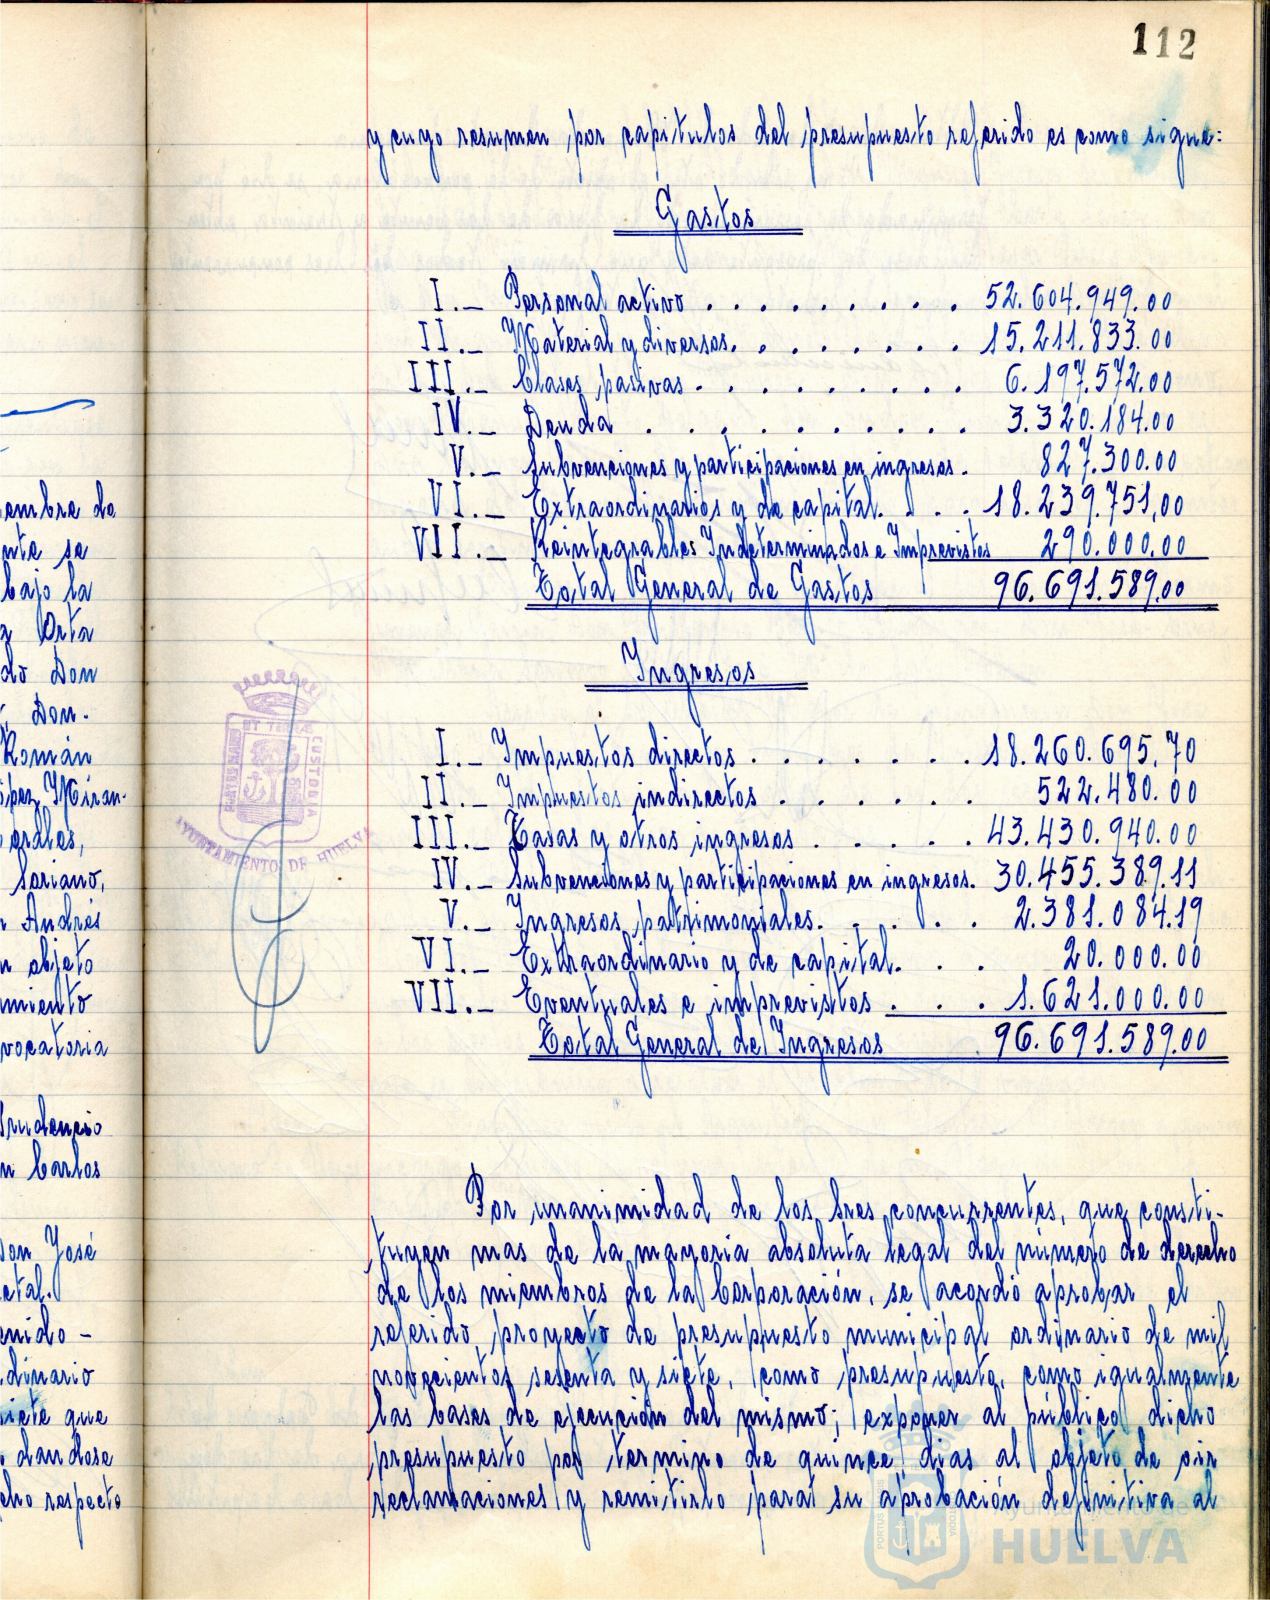 112
y cuyo resumen por capitulos del presupuesto referido es como sigue:
Gastos
I._ Personal activo . . . . . . . . . . 52.604.949.00
II._ Material y diversos. . . . . . . . . 15.211.833.00
III._ Clases pasivas . . . . . . . . . . 6.197.572.00
IV._ Deuda . . . . . . . . . . . 3.320.184.00
V._ Subvenciones y participaciones en ingresos . 827.300.00
VI._ Extraordinarios y de capital. . . . 18.239.751,00
VII._ Reintegrables Indeterminados e Imprevistos 290.000,00
Total General de Gastos 96.691.589.00
Ingresos
I._ Impuestos directos . . . . . . . . 18.260.695,70
II._ Impuestos indirectos . . . . . . . 522.480.00
III._ Tasas y otros ingresos . . . . . . 43.430.940.00
IV._ Subvenciones y participaciones en ingresos. 30.455.389.11
V._ Ingresos patrimoniales. . . . . . 2.381.084.19
VI._ Extraordinario y de capital. . . . 20.000.00
VII._ Eventuales e imprevistos . . . 1.621.000.00
Total General de Ingresos 96.691.589.00
Por unanimidad de los Sres concurrentes, que consti-
tuyen mas de la mayoria absoluta legal del número de derecho
de los miembros de la Corporación, se acordó aprobar el
referido proyecto de presupuesto municipal ordinario de mil
novecientos sesenta y siete, como presupuesto, como igualmente
las bases de ejecución del mismo; exponer al público dicho
presupuesto por termino de quince dias al objeto de oir
reclamaciones y remitirlo para su aprobación definitiva al
PORTUS MARIS ET TERRAE CUSTODIA
AYUNTAMIENTO DE HUELVA
embre de
nte se
bajo la
z Orta
do Don
Don.
Román
ópez, Miran-
orales,
Soriano,
n Andrés
n objeto
amiento
vocatoria
Prudencio
n Carlos
Don José
etal.
enido -
dinario
siete que
dandose
cho respecto
Ayuntamiento de
HUELVA